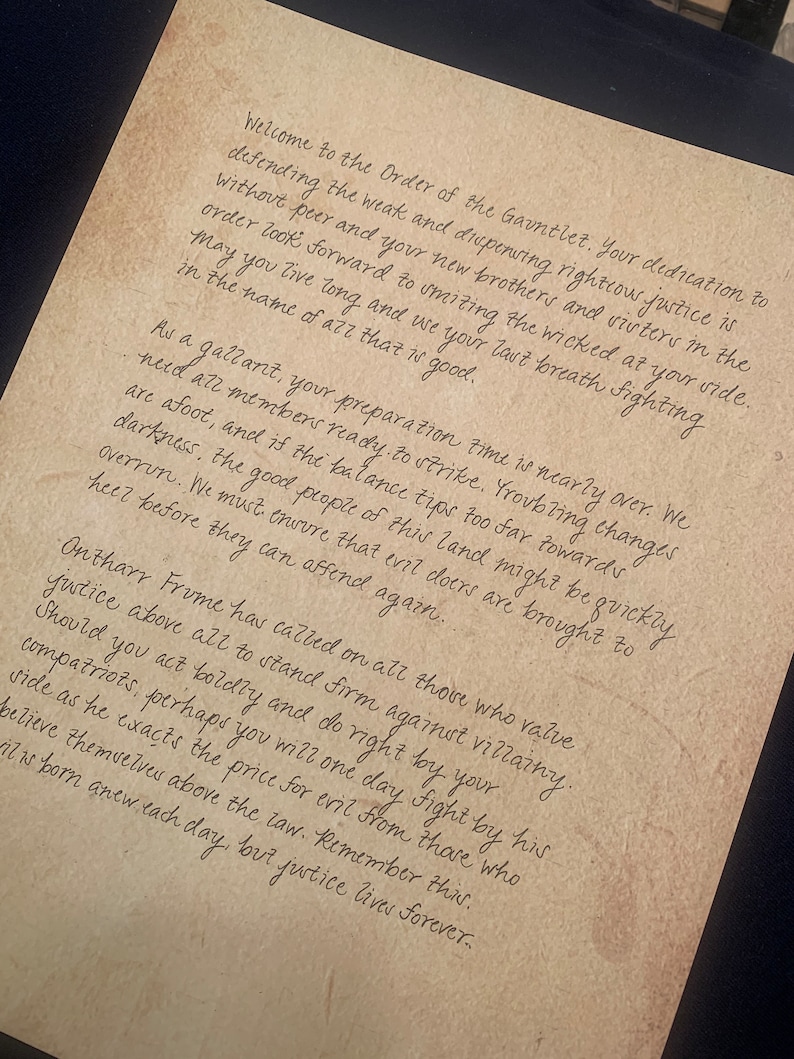 Welcome to the Order of the Gauntlet. Your dedication to
defending the weak and dispensing righteous justice is
without peer and your new brothers and sisters in the
order look forward to smiting the wicked at your side.
May you live long and use your last breath fighting
in the name of all that is good.
As a gallant, your preparation time is nearly over. We
need all members ready to strike. Troubling changes
are afoot, and if the balance tips too far towards
darkness, the good people of this land might be quickly
overrun. We must ensure that evil doers are brought to
heel before they can offend again.
Ontharr Frume has called on all those who value
justice above all to stand firm against villainy.
Should you act boldly and do right by your
compatriots, perhaps you will one day fight by his
side as he exacts the price for evil from those who
believe themselves above the law. Remember this.
vil is born anew each day, but justice lives forever.